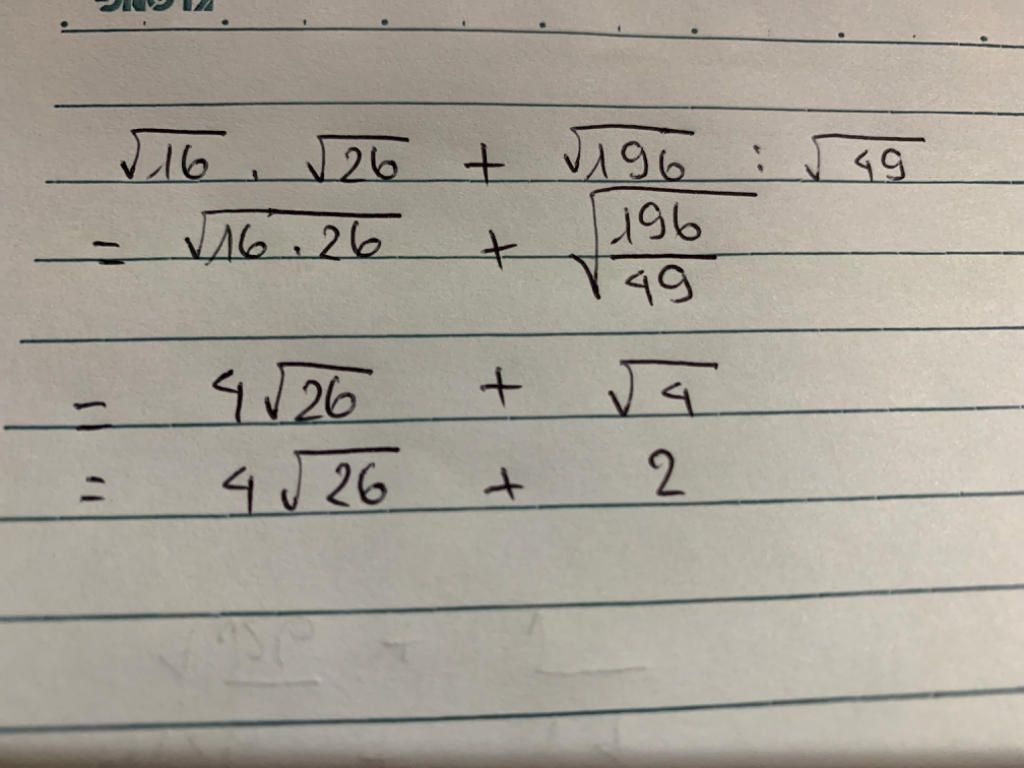 √16 . √26 + √196 : √49
= √16 . 26 + √196/49
= 4√26 + √4
= 4√26 + 2